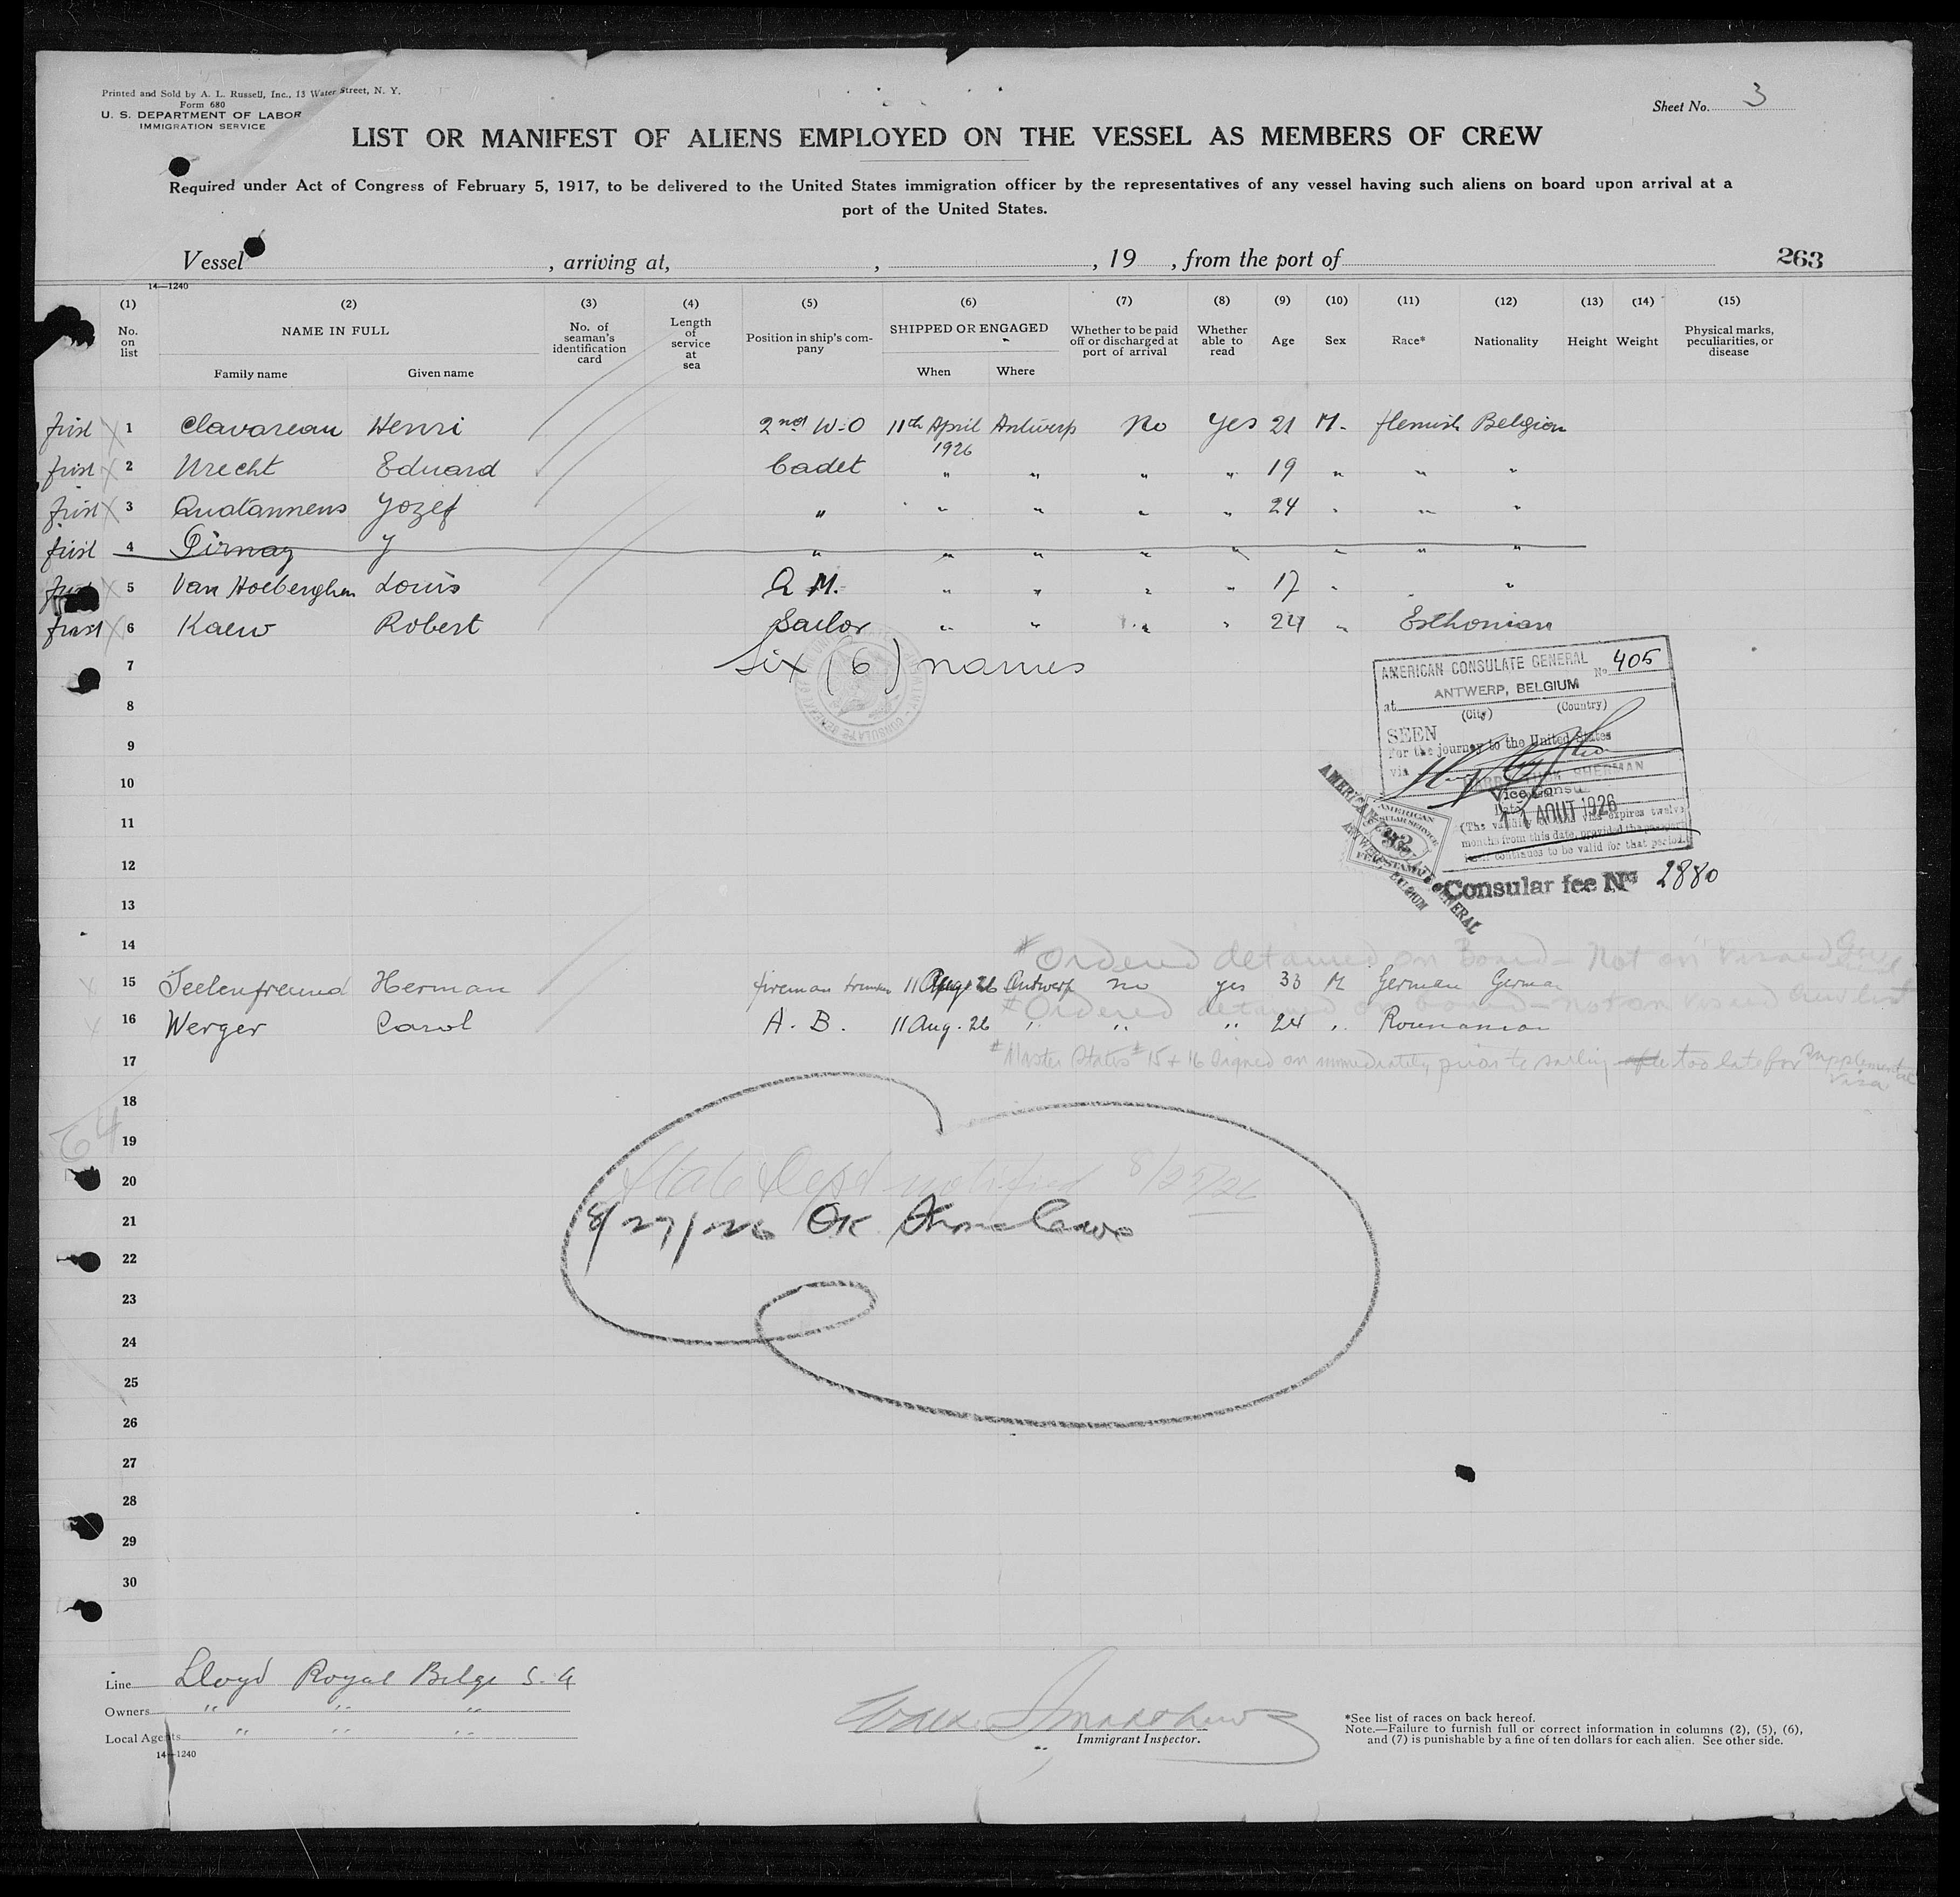 Printed and Sold by A. L. Russell, Inc., 13 Water Street, N. Y.
Form 680
U. S. DEPARTMENT OF LABOR
IMMIGRATION SERVICE
Sheet No. 3
LIST OR MANIFEST OF ALIENS EMPLOYED ON THE VESSEL AS MEMBERS OF CREW
Required under Act of Congress of February 5, 1917, to be delivered to the United States immigration officer by the representatives of any vessel having such aliens on board upon arrival at a
port of the United States.
Vessel , arriving at, , , 19 , from the port of 263
14—1240
(1) (2) (3) (4) (5) (6) (7) (8) (9) (10) (11) (12) (13) (14) (15)
No. on list NAME IN FULL Family name Given name No. of seaman's identification card Length of service at sea Position in ship's company SHIPPED OR ENGAGED When Where Whether to be paid off or discharged at port of arrival Whether able to read Age Sex Race* Nationality Height Weight Physical marks, peculiarities, or disease
first 1 Clavareau Henri 2nd W-O 11th April 1926 Antwerp No Yes 21 M. flemish Belgian
first 2 Urecht Eduard Cadet " " " " 19 " " "
first 3 Quatannens Yozef " " " " " 24 " " "
first 4 Pirnay Y " " " " " " " "
first 5 Van Hoeberghen Louis Q M. " " " " 17 " "
first 6 Kaew Robert Sailor " " " " 24 " Esthonian
7 Six (6) names
8
9
10
11
12
13
14
AMERICAN CONSULATE GENERAL No. 405
at ANTWERP, BELGIUM
(City) (Country)
SEEN
For the journey to the United States
via
SHERMAN
Vice Consul
11 AOUT 1926
(The validity of this visa expires twelve
months from this date, provided the passport
continues to be valid for that period.)
AMERICAN CONSULATE GENERAL
ANTWERP BELGIUM
AMERICAN CONSULAR SERVICE
$2
FEE STAMP
Consular fee No 2880
# Ordered detained on Board - Not on visaed Crew
15 Seelenfreund Herman fireman trimmer 11 Aug 26 Antwerp no yes 33 M German German
# Ordered detained on board - not on visaed crew list
16 Werger Carol A. B. 11 Aug. 26 " " " 24 " Roumanian
# Master States # 15 + 16 signed on immediately prior to sailing too late for supplemental visa
17
18
64
19
20 State Dept notified 8/25/26
21 8/27/26 OK
22
23
24
25
26
27
28
29
30
Line Lloyd Royal Belge S. A
Owners " " "
Local Agents " " "
14—1240
Immigrant Inspector.
*See list of races on back hereof.
Note.—Failure to furnish full or correct information in columns (2), (5), (6),
and (7) is punishable by a fine of ten dollars for each alien. See other side.